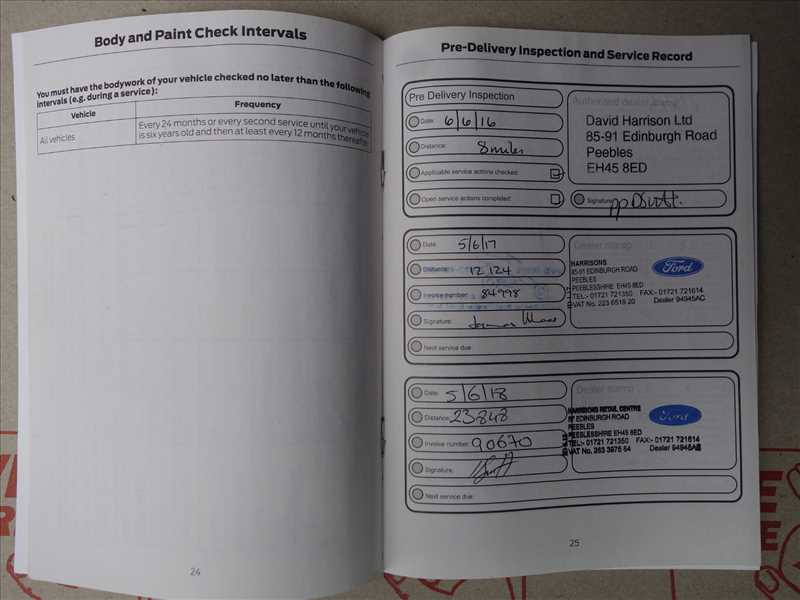 Body and Paint Check Intervals
You must have the bodywork of your vehicle checked no later than the following
intervals (e.g. during a service):
Vehicle
Frequency
All vehicles
Every 24 months or every second service until your vehicle
is six years old and then at least every 12 months thereafter.
24
Pre-Delivery Inspection and Service Record
Pre Delivery Inspection
Date: 6/6/16
Distance: 8 miles
Applicable service actions checked:
Open service actions completed:
Authorized dealer stamp
David Harrison Ltd
85-91 Edinburgh Road
Peebles
EH45 8ED
Signature:
Date: 5/6/17
Distance: 12 124
Invoice number: 84998
Signature:
Next service due:
Dealer stamp
HARRISONS
85-91 EDINBURGH ROAD
PEEBLES
PEEBLESSHIRE EH45 8ED
TEL:- 01721 721350 FAX:- 01721 721614
VAT No. 223 6518 20 Dealer 94945AC
Ford
Date: 5/6/18
Distance: 23848
Invoice number: 90670
Signature:
Next service due:
Dealer stamp
HARRISONS RETAIL CENTRE
EDINBURGH ROAD
PEEBLES
PEEBLESSHIRE EH45 8ED
TEL:- 01721 721350 FAX:- 01721 721614
VAT No. 263 3976 64 Dealer 94945AB
Ford
25